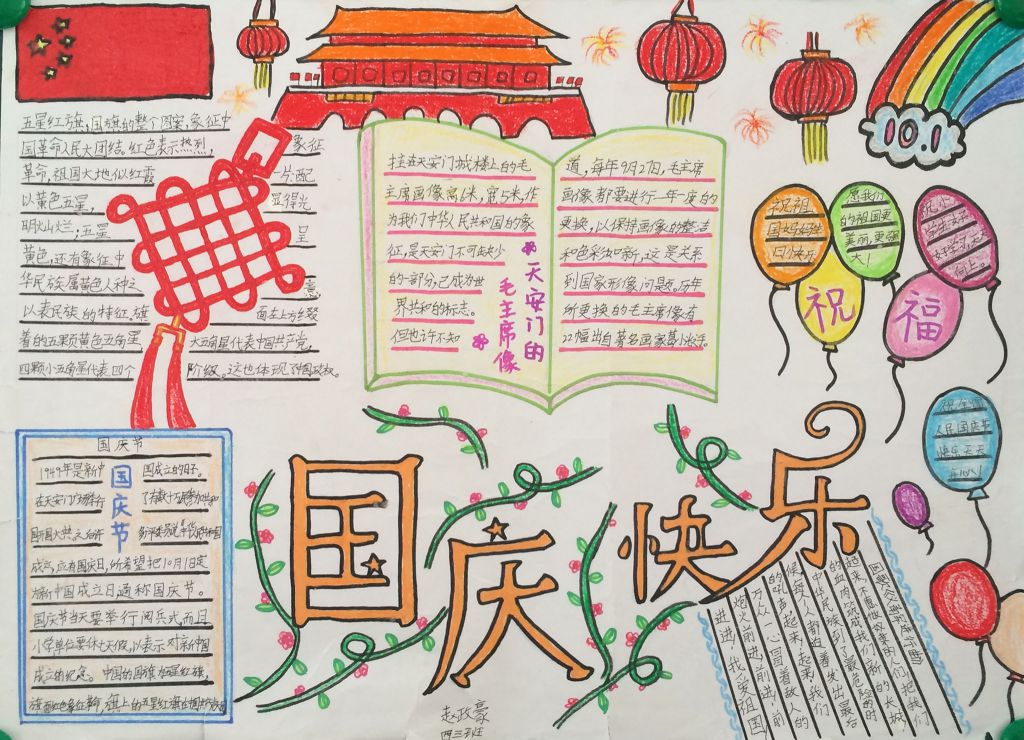 五星红旗,国旗的整个图案,象征中
国革命人民大团结。红色表示热烈, 象征
革命,祖国大地似红霞 一片,配
以黄色五星, 显得光
明灿烂;五星 呈
黄色,还有象征中
华民族属黄色人种之 意,
以表民族的特征,旗 面左上方缀
着的五颗黄色五角星, 大五角星代表中国共产党,
四颗小五角星代表四个 阶级,这也体现了中国政权。
挂在天安门城楼上的毛
主席画像高6米,宽5米,作
为我们中华人民共和国的象
征,是天安门不可缺少
的一部分,已成为世
界共和的标志。
但也许不知
天安门的
毛主席像
道,每年9月27日,毛主席
画像都要进行一年一度的
更换,以保持画像的整洁
和色彩如新,这是关系
到国家形像问题,历年
所更换的毛主席像有
22幅出自著名画家葛小光手。
10.1
祝祖
国妈妈
愿我们
的祖国更
美丽,更强
大!
祝小
学生好
好学习,天
天向上。
祝
福
人民国庆节
快乐天天
开心!
国庆节
国庆节
1949年是新中 国成立的日子。
在天安门广场举行
成立,应有国庆日,所希望把10月1日定
为新中国成立日通称国庆节。
国庆节当天要举行阅兵式,而且
小学单位要休七天假,以表示对新中国
成立的纪念。中国的国旗为五星红旗,
国庆快乐
起来,不愿做奴隶的人们,把我们
的血肉,筑成我们新的长城,
中华民族到了最危险的时
候,每个人被迫着发出最后
的吼声,起来,起来,我们
万众一心,冒着敌人的
炮火前进,前进,前
进,进,我爱祖国
赵政豪
四三班